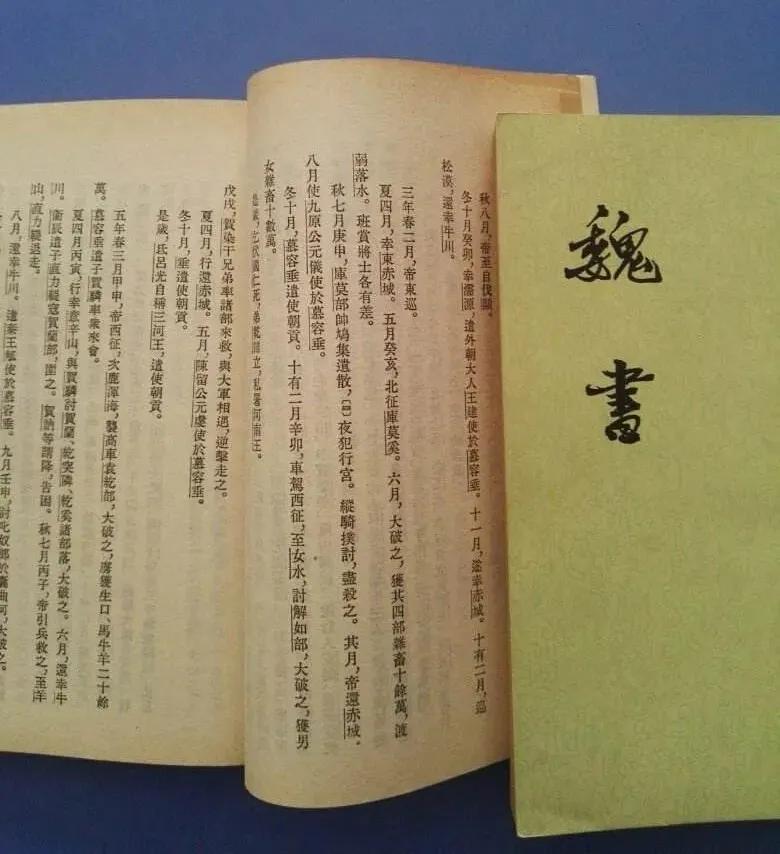 秋八月，帝至自伐顯。
冬十月癸卯，幸濡源，遣外朝大人王建使於慕容垂。十一月，遂幸赤城。十有二月，巡
松漠，還幸牛川。
三年春二月，帝東巡。
夏四月，幸東赤城。五月癸亥，北征庫莫奚。六月，大破之，獲其四部雜畜十餘萬，渡
弱落水。班賞將士各有差。
秋七月庚申，庫莫部帥鳩集遺散，〔四〕夜犯行宮。縱騎撲討，盡殺之。其月，帝還赤城。
八月使九原公元儀使於慕容垂。
冬十月，慕容垂遣使朝貢。十有二月辛卯，車駕西征，至女水，討解如部，大破之，獲男
女雜畜十數萬。
乞伏國仁死，弟乾歸立，私署河南王。
戊戌，賀染干兄弟率諸部來救，與大軍相遇，逆擊走之。
夏四月，行還赤城。五月，陳留公元虔使於慕容垂。
冬十月，垂遣使朝貢。
是歲，氐呂光自稱三河王，遣使朝貢。
五年春三月甲申，帝西征，次鹿渾海，襲高車袁紇部，大破之，虜獲生口、馬牛羊二十餘
萬。慕容垂遣子賀驎率衆來會。
夏四月丙寅，行幸意辛山，與賀驎討賀蘭、紇突隣、紇奚諸部落，大破之。六月，還幸牛
川。衞辰遣子直力鞮寇賀蘭部，圍之。賀訥等請降，告困。秋七月丙子，帝引兵救之，至羊
山，直力鞮退走。
八月，還幸牛川。遣秦王觚使於慕容垂。九月壬申，討叱奴部於囊曲河，大破之。
魏書